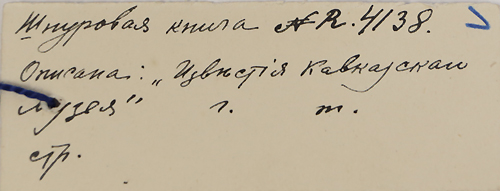 Шнуровая книга № R. 4138.
Описана: „Извѣстія Кавказскаго
Музея" г. т.
стр.